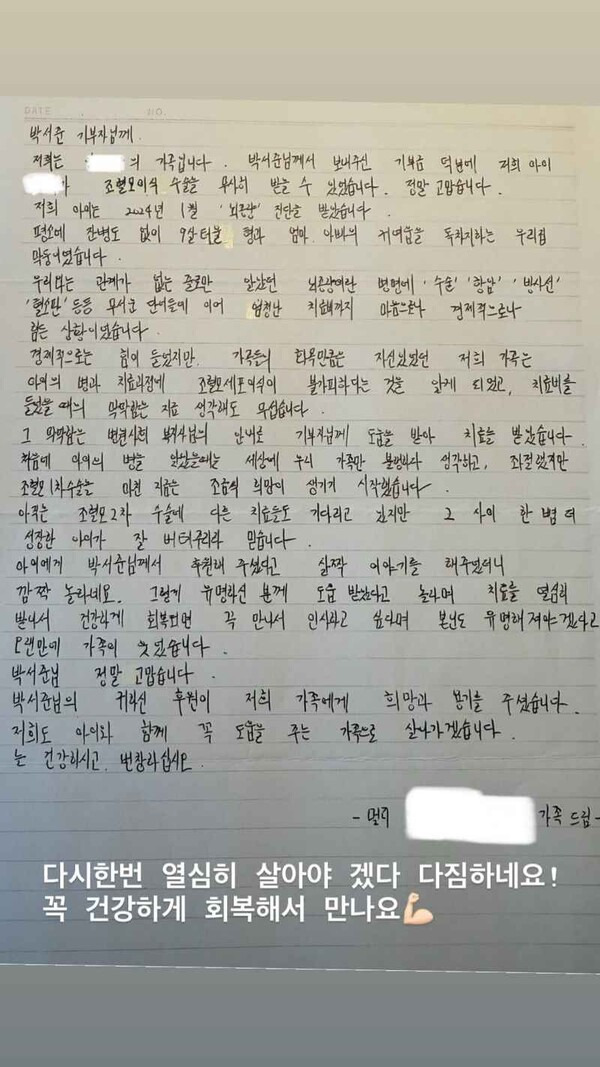 DATE . . NO.
박서준 기부자님께.
저희는 의 가족입니다. 박서준님께서 보내주신 기부금 덕분에 저희 아이
가 조혈모이식 수술을 무사히 받을 수 있었습니다. 정말 고맙습니다.
저희 아이는 2024년 1월 '뇌종양' 진단을 받았습니다.
평소에 잔병도 없이 9살 터울 형과 엄마. 아빠의 귀여움을 독차지하는 우리집
막둥이였습니다.
우리와는 관계가 없는 줄로만 알았던 뇌종양이란 병명에 '수술' '항암' '방사선'
'혈소판' 등등 무서운 단어들에 이어 엄청난 치료비까지 마음으로나 경제적으로나
힘든 상황이었습니다.
경제적으로는 힘이 들었지만. 가족들의 화목만큼은 자신있었던 저희 가족는
아이의 병과 치료과정에 조혈모세포이식이 불가피하다는 것을 알게 되었고, 치료비를
들었을 때의 막막함은 지금 생각해도 무섭습니다.
그 막막함은 병원사회복지사님의 안내로 기부자님께 도움을 받아 치료를 받았습니다.
처음에 아이의 병을 알았을때는 세상에 우리 가족만 불행하다 생각하고, 좌절했지만
조혈모 1차수술을 마친 지금은 조금씩 희망이 생기기 시작했습니다.
아직은 조혈모 2차 수술에 다른 치료들도 기다리고 있지만 그 사이 한 뼘 더
성장한 아이가 잘 버텨주리라 믿습니다.
아이에게 박서준님께서 후원해 주셨다고 살짝 이야기를 해주었더니
깜짝 놀라네요. 그렇게 유명하신 분께 도움 받았다고 놀라며 치료를 열심히
받아서 건강하게 회복되면 꼭 만나서 인사하고 싶다며 본인도 유명해져야겠다고
오랜만에 가족이 웃었습니다.
박서준님 정말 고맙습니다.
박서준님의 귀하신 후원이 저희 가족에게 희망과 용기를 주셨습니다.
저희도 아이와 함께 꼭 도움을 주는 가족으로 살아가겠습니다.
늘 건강하시고. 번창하십시오.
- 멀리 가족 드림 -
다시한번 열심히 살아야 겠다 다짐하네요!
꼭 건강하게 회복해서 만나요💪🏻